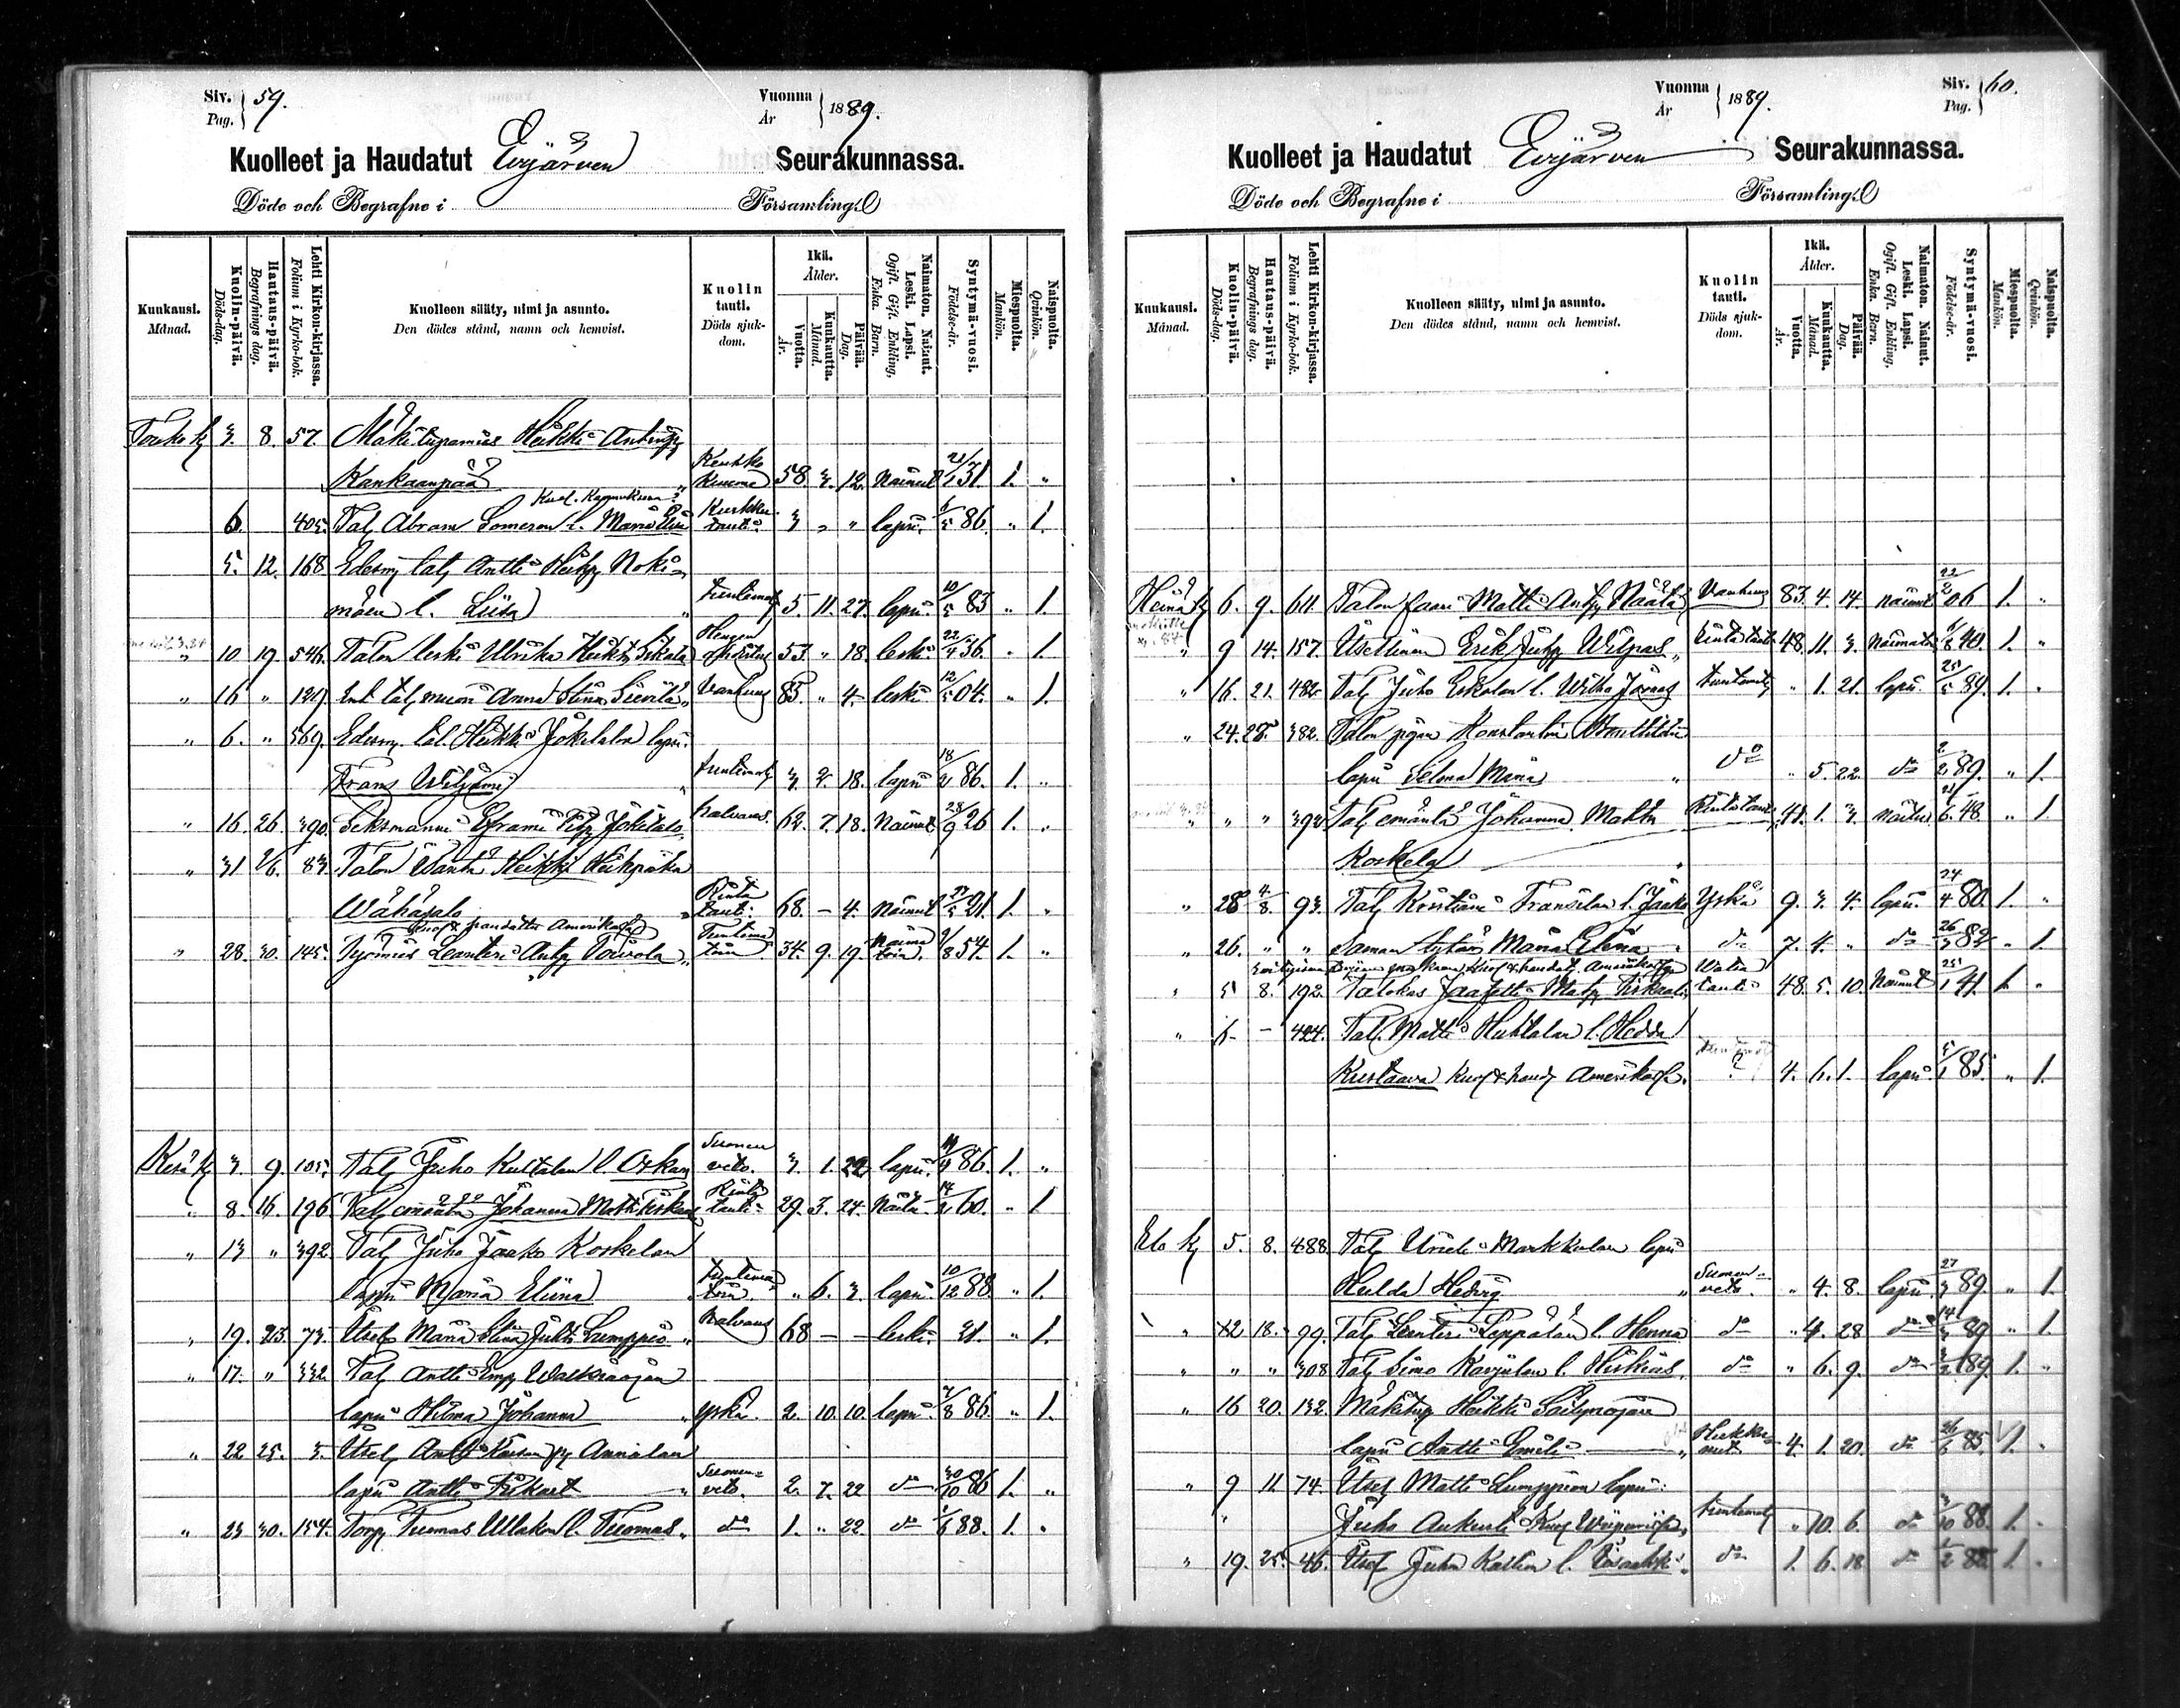 Siv. Pag. 59.
Vuonna År 1889.
Kuolleet ja Haudatut Evijärven Seurakunnassa.
Döde och Begrafne i Församling.
Kuukausi. Månad.
Kuolin-päivä. Döds-dag.
Hautaus-päivä. Begrafnings dag.
Lehti Kirkon-kirjassa. Folium i Kyrko-bok.
Kuolleen sääty, nimi ja asunto. Den dödes stånd, namn och hemvist.
Kuolin tauti. Döds sjuk-dom.
Ikä. Ålder.
Vuotta. År.
Kuukautta. Månad.
Päivää. Dag.
Naimaton. Nainut. Leski. Lapsi. Ogift. Gift. Enkling, Enka. Barn.
Syntymä-vuosi. Födelse-år.
Miespuolta. Mankön.
Naispuolta. Qvinkön.
Touko k 3. 8. 57. Mäkitupamies Heikki Antinp
Kankaanpää " Keuhko kuume 58. 3. 12. Nainut 21/1 31 1. "
6. 405. Tal Abram Someron l. Maria Kurkku tauti 3 " " lapsi. 6/5 86. " 1.
5. 12. 168 Edesm tal Antti Heikp Noki-
mäen l. Liisa " tuntemat 5. 11. 27. lapsi. 10/5 83 " 1.
" 10 19. 546. Talon leski Ulrika Heikt Sikala Hengen ahdistus 53. " 18. leski. 22/4 36. " 1.
" 16 " 129. Ent tal muori Anna Stina Vanhuus 85. " 4. leski. 12/5 04. " 1.
" 6. " 569. Edesm. tal. Heikki Jokelalon lapsi.
Frans Wiljami " tuntemat 3 2. 18. lapsi 18/2 86. 1. "
" 16. 26. 390. Seksmanni Efraim Jokitalo halvaus. 62. 7. 18. Nainut 28/9 26 1. "
" 31 2/6. 83. Talon Wanha Heikki Heikp
Wähäsalo Rinta tauti. 68. - 4. Nainut 27/5 21. 1. "
Kuol & haudattu Amerikassa
" 28. 30. 145. Työmies Leanteri Antp Toivola Tuntema toin 34. 9. 19 Naima toin. 9/8 54. 1. "
Kesä k 3. 9. 105. Tal Juho Kultalan l. Oskar Suonen veto. 3. 1. 22 lapsi. 86. 1. "
" 8. 16. 196. Tal emäntä Johanna Matt Rinta tauti 29. 3. 24. Naitu 14/2 60. " 1
" 13 " 392 Tal Juho Jaako Koskelan
lapsi Maria Eliina tuntema toin " 6. 3. lapsi. 10/12 88. " 1.
" 19. 23. 73. Itsel Maria Stina Juht Lumppio " halvaus 68 - - leski. 21. " 1.
" 17. " 332 Tal Antti
lapsi Hilma Johanna " yskä. 2. 10. 10. lapsi. 7/8 86. " 1.
" 22 25. 3. Itsel Antti Annalan
lapsi Antti " Suonen-veto. 2. 7. 22 do 30/10 86 1. "
" 23 30. 154. Torp Tuomas Ullakon l. Tuomas " do 1. " 22. do 1/6 88. 1. "
Siv. Pag. 60.
Vuonna År 1889.
Kuolleet ja Haudatut Evijärven Seurakunnassa.
Döde och Begrafne i Församling.
Kuukausi. Månad.
Kuolin-päivä. Döds-dag.
Hautaus-päivä. Begrafnings dag.
Lehti Kirkon-kirjassa. Folium i Kyrko-bok.
Kuolleen sääty, nimi ja asunto. Den dödes stånd, namn och hemvist.
Kuolin tauti. Döds sjuk-dom.
Ikä. Ålder.
Vuotta. År.
Kuukautta. Månad.
Päivää. Dag.
Naimaton. Nainut. Leski. Lapsi. Ogift. Gift. Enkling, Enka. Barn.
Syntymä-vuosi. Födelse-år.
Miespuolta. Mankön.
Naispuolta. Qvinkön.
Heinä k 6. 9. 611. Talon faari Matti Antp Vanhuus 83. 4. 14. nainut 22/2 06 1. "
" 9 14. 157. Itsellinen Erik Juhp Rinta tauti 48. 11. 3. Naimaton 40. 1. "
" 16. 21. 482. Tal Juho Eskolan l. Wilho Jonas tuntemat " 1. 21. lapsi 25/5 89. 1. "
" 24. 28. 382. Talon Konstantin
lapsi Selma Maria " do " 5. 22. do 2/2 89. " 1.
" " " 392 Tal emäntä Johanna Matti Rintatauti 41. 1. 3. naitu 21/6 48. " 1.
Koskela "
" 28 4/8. 93. Tal Kristian Fransilan l. Jaako Yskä 9. 3. 4. lapsi 24/4 80. 1. "
" 26. " " Saman tytär Maria Elina do 7. 4. " do 26/3 82. " 1.
" 5 8. 192. Jaafetti Matp Watsa tauti 48. 5. 10. Nainut 25/1 41. 1. "
" 6 - 424. Tal. Matti Huhtalan l. Hedda
Kustaava Kuol & haud Amerikassa. ? 4. 6. 1. lapsi. 5/1 85. " 1.
Elo k 5. 8. 488. Tal Markkulan lapsi
Hulda Hedvig " Suonen-veto. " 4. 8. lapsi. 27/3 89. " 1.
" 12 18. 99. Tal Leanteri Leppälän l. Henna do " 4. 28 do 14/3 89 " 1.
" " " 308 Tal Simo Karjulan l. Hiskias. do " 6. 9. do 3/2 89. 1. "
" 16 20. 132. Mäkitup Heikki
lapsi Antti Emil " Hukku-nut. 4. 1. 20. do 26/6 85. 1. "
" 9 11 74 Itsel Matti Lumppion lapsi.
" Juho Aukusti tuntemat " 10. 6. do 3/10 88. 1. "
" 19. 25. 46. Itsel Juha Kallion l. Iisakki. do 1. 6. 18 do 1/2 88. 1. "